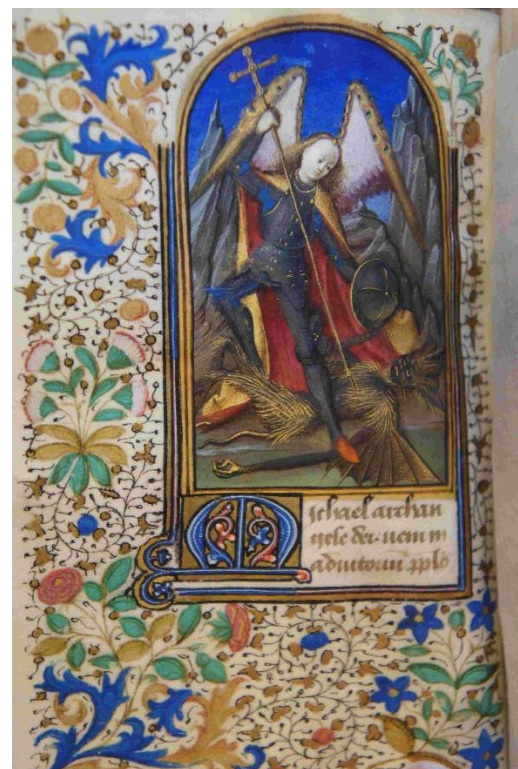 Michael archan
gele dei veni in
adiutorium pplo